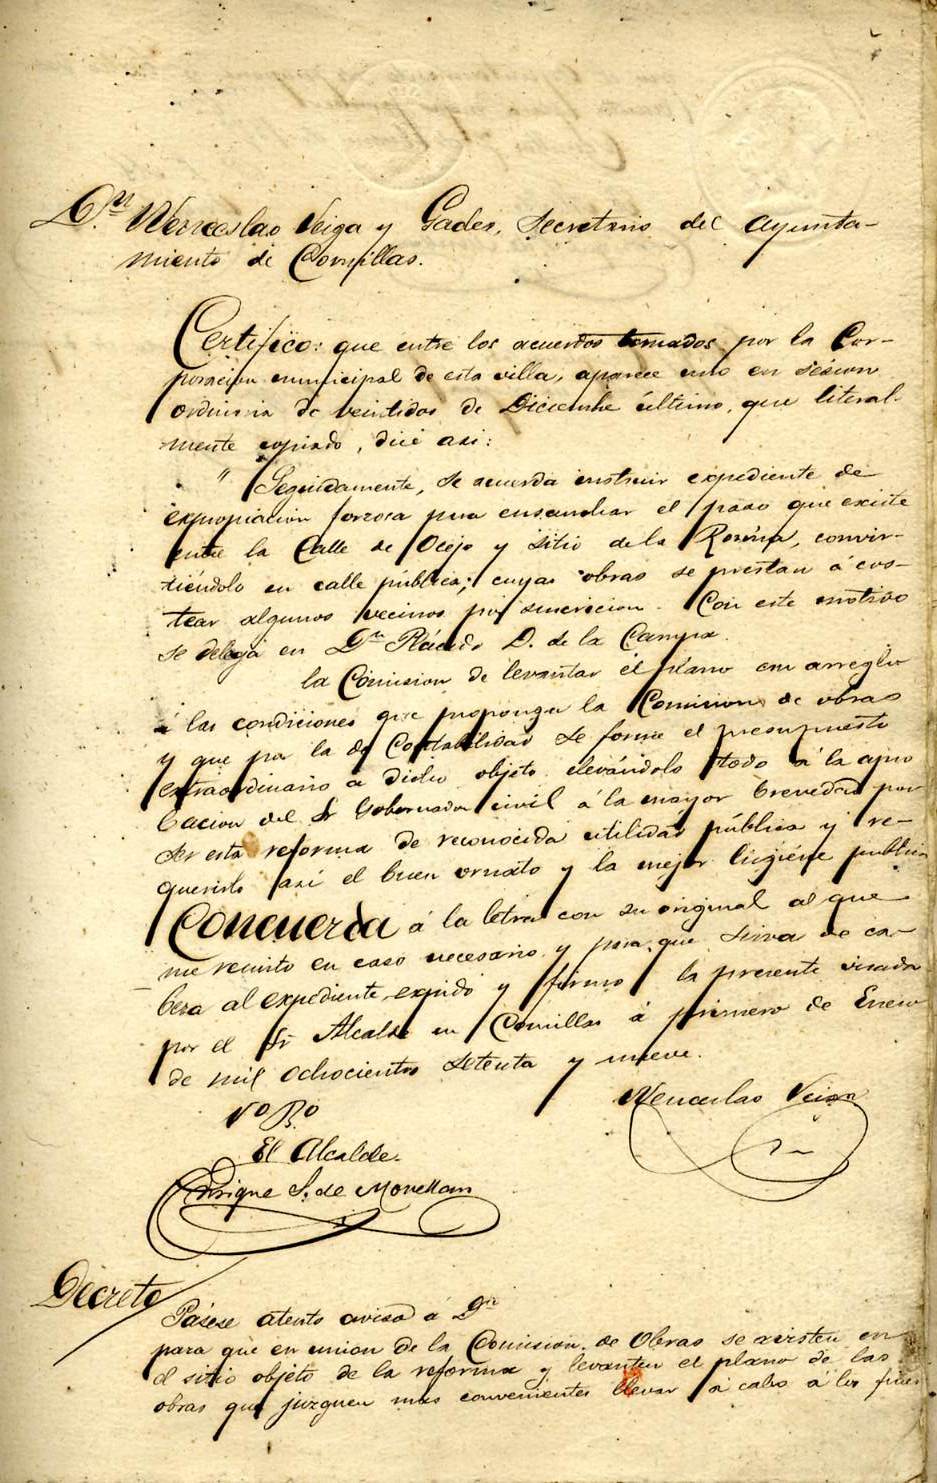 Dn. Wenceslao Veiga y Gades, Secretario del Ayunta-
miento de Comillas.
Certifico: que entre los acuerdos tomados por la Cor-
poracion municipal de esta villa, aparece uno en sesion
ordinaria de veintidos de Diciembre último, que literal-
mente copiado, dice asi:
" Seguidamente, se acuerda instruir expediente de
expropiacion forzosa para ensanchar el paso que existe
entre la Calle de Ocejo y sitio de la Rovina, convir-
tiéndolo en calle pública; cuyas obras se prestan á cos-
tear algunos vecinos por suscricion. Con este motivo
se delega en Dn Plácido D. de la Campa
la Comision de levantar el plano con arreglo
á las condiciones que proponga la Comision de obras
y que por la de Contabilidad se forme el presupuesto
extraordinario á dicho objeto elevándolo todo á la apro
bacion del Sr Gobernador civil á la mayor brevedad por
ser esta reforma de reconocida utilidad pública y re-
querirlo asi el buen ornato y la mejor higiéne publica
Concuerda á la letra con su original al que
me remito en caso necesario y para que sirva de ca-
beza al expediente expido y firmo la presente visada
por el Sr Alcalde en Comillas á primero de Enero
de mil ochocientos setenta y nueve.
Vo Bo
Wenceslao Veiga
El Alcalde.
Enrique S. de Movellan
Decreto
Pásese atento aviso á Dn
para que en union de la Comision de Obras se avisten en
el sitio objeto de la reforma y levanten el plano de las
obras que juzguen mas convenientes llevar á cabo á los fines